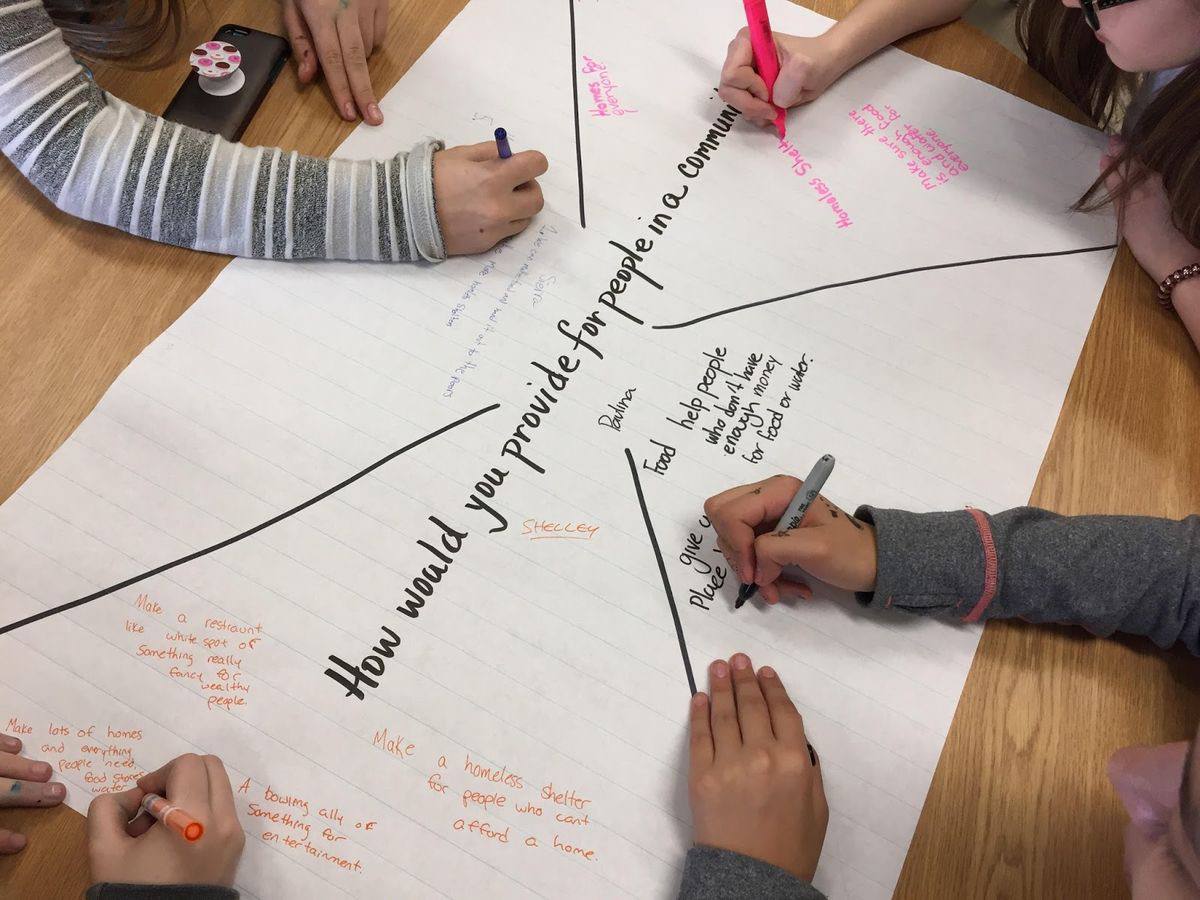 How would you provide for people in a communi
Homes for
everyone
Make sure there
is enough food
and water for
everyone
Homeless Shelt
Sierra
hand it out to the
make more homeless
Paulina
Food help people
who don't have
enough money
for food or water.
give
Place
SHELLEY
Make a restraunt
like white spot or
Something really
fancy for
wealthy
people.
Make lots of homes
and everything
people need,
food stores
water
A bowling ally or
Something for
entertainment.
Make a homeless shelter
for people who cant
afford a home.